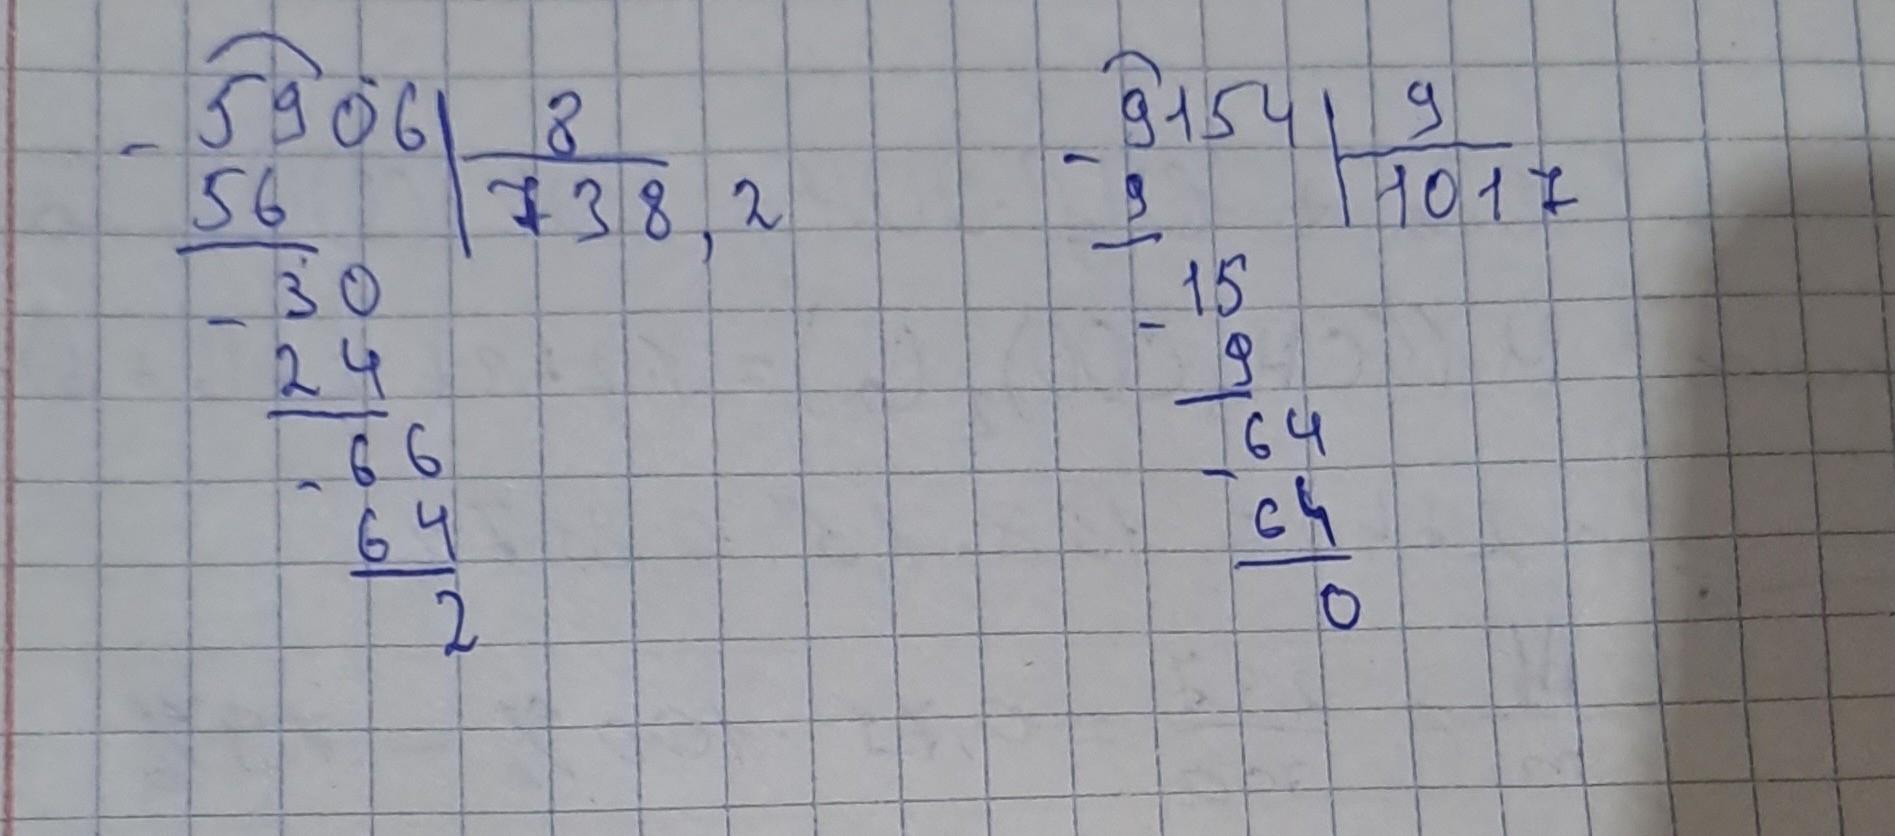 - 5906 | 8
56 | 738,2
- 30
24
- 66
64
2
- 9154 | 9
9 | 1017
- 15
9
- 64
64
0